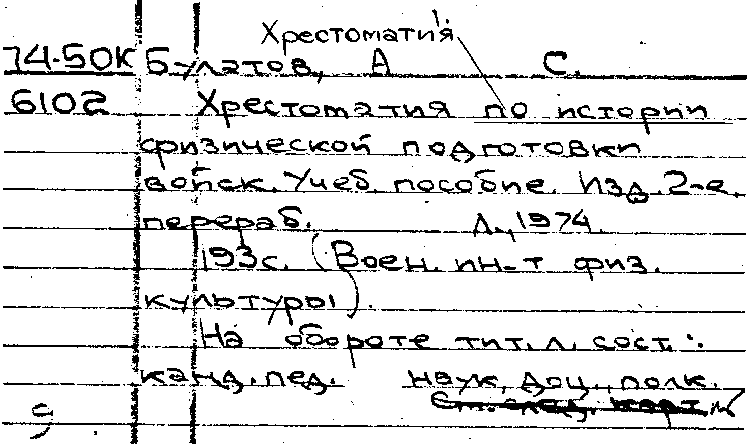 Хрестоматия:
74-50К Булатов, А С.
6102 Хрестоматия по истории
физической подготовки
войск. Учеб. пособие. Изд. 2-е.
перераб. Л., 1974.
193с. (Воен. ин-т физ.
культуры).
На обороте тит. л. сост.:
канд. пед. наук, доц., полк.
См. след. карт.